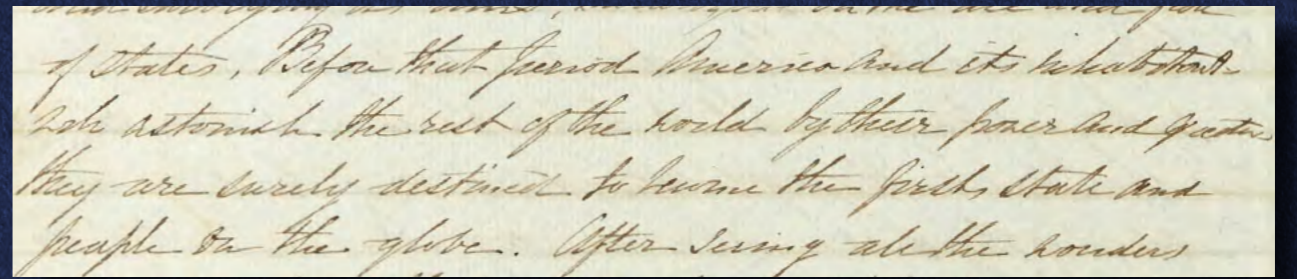 of states, Before that period America and its inhabitants
astonish the rest of the world by their power and
they are surely destined to become the first state and
people on the globe. After seeing all the wonders